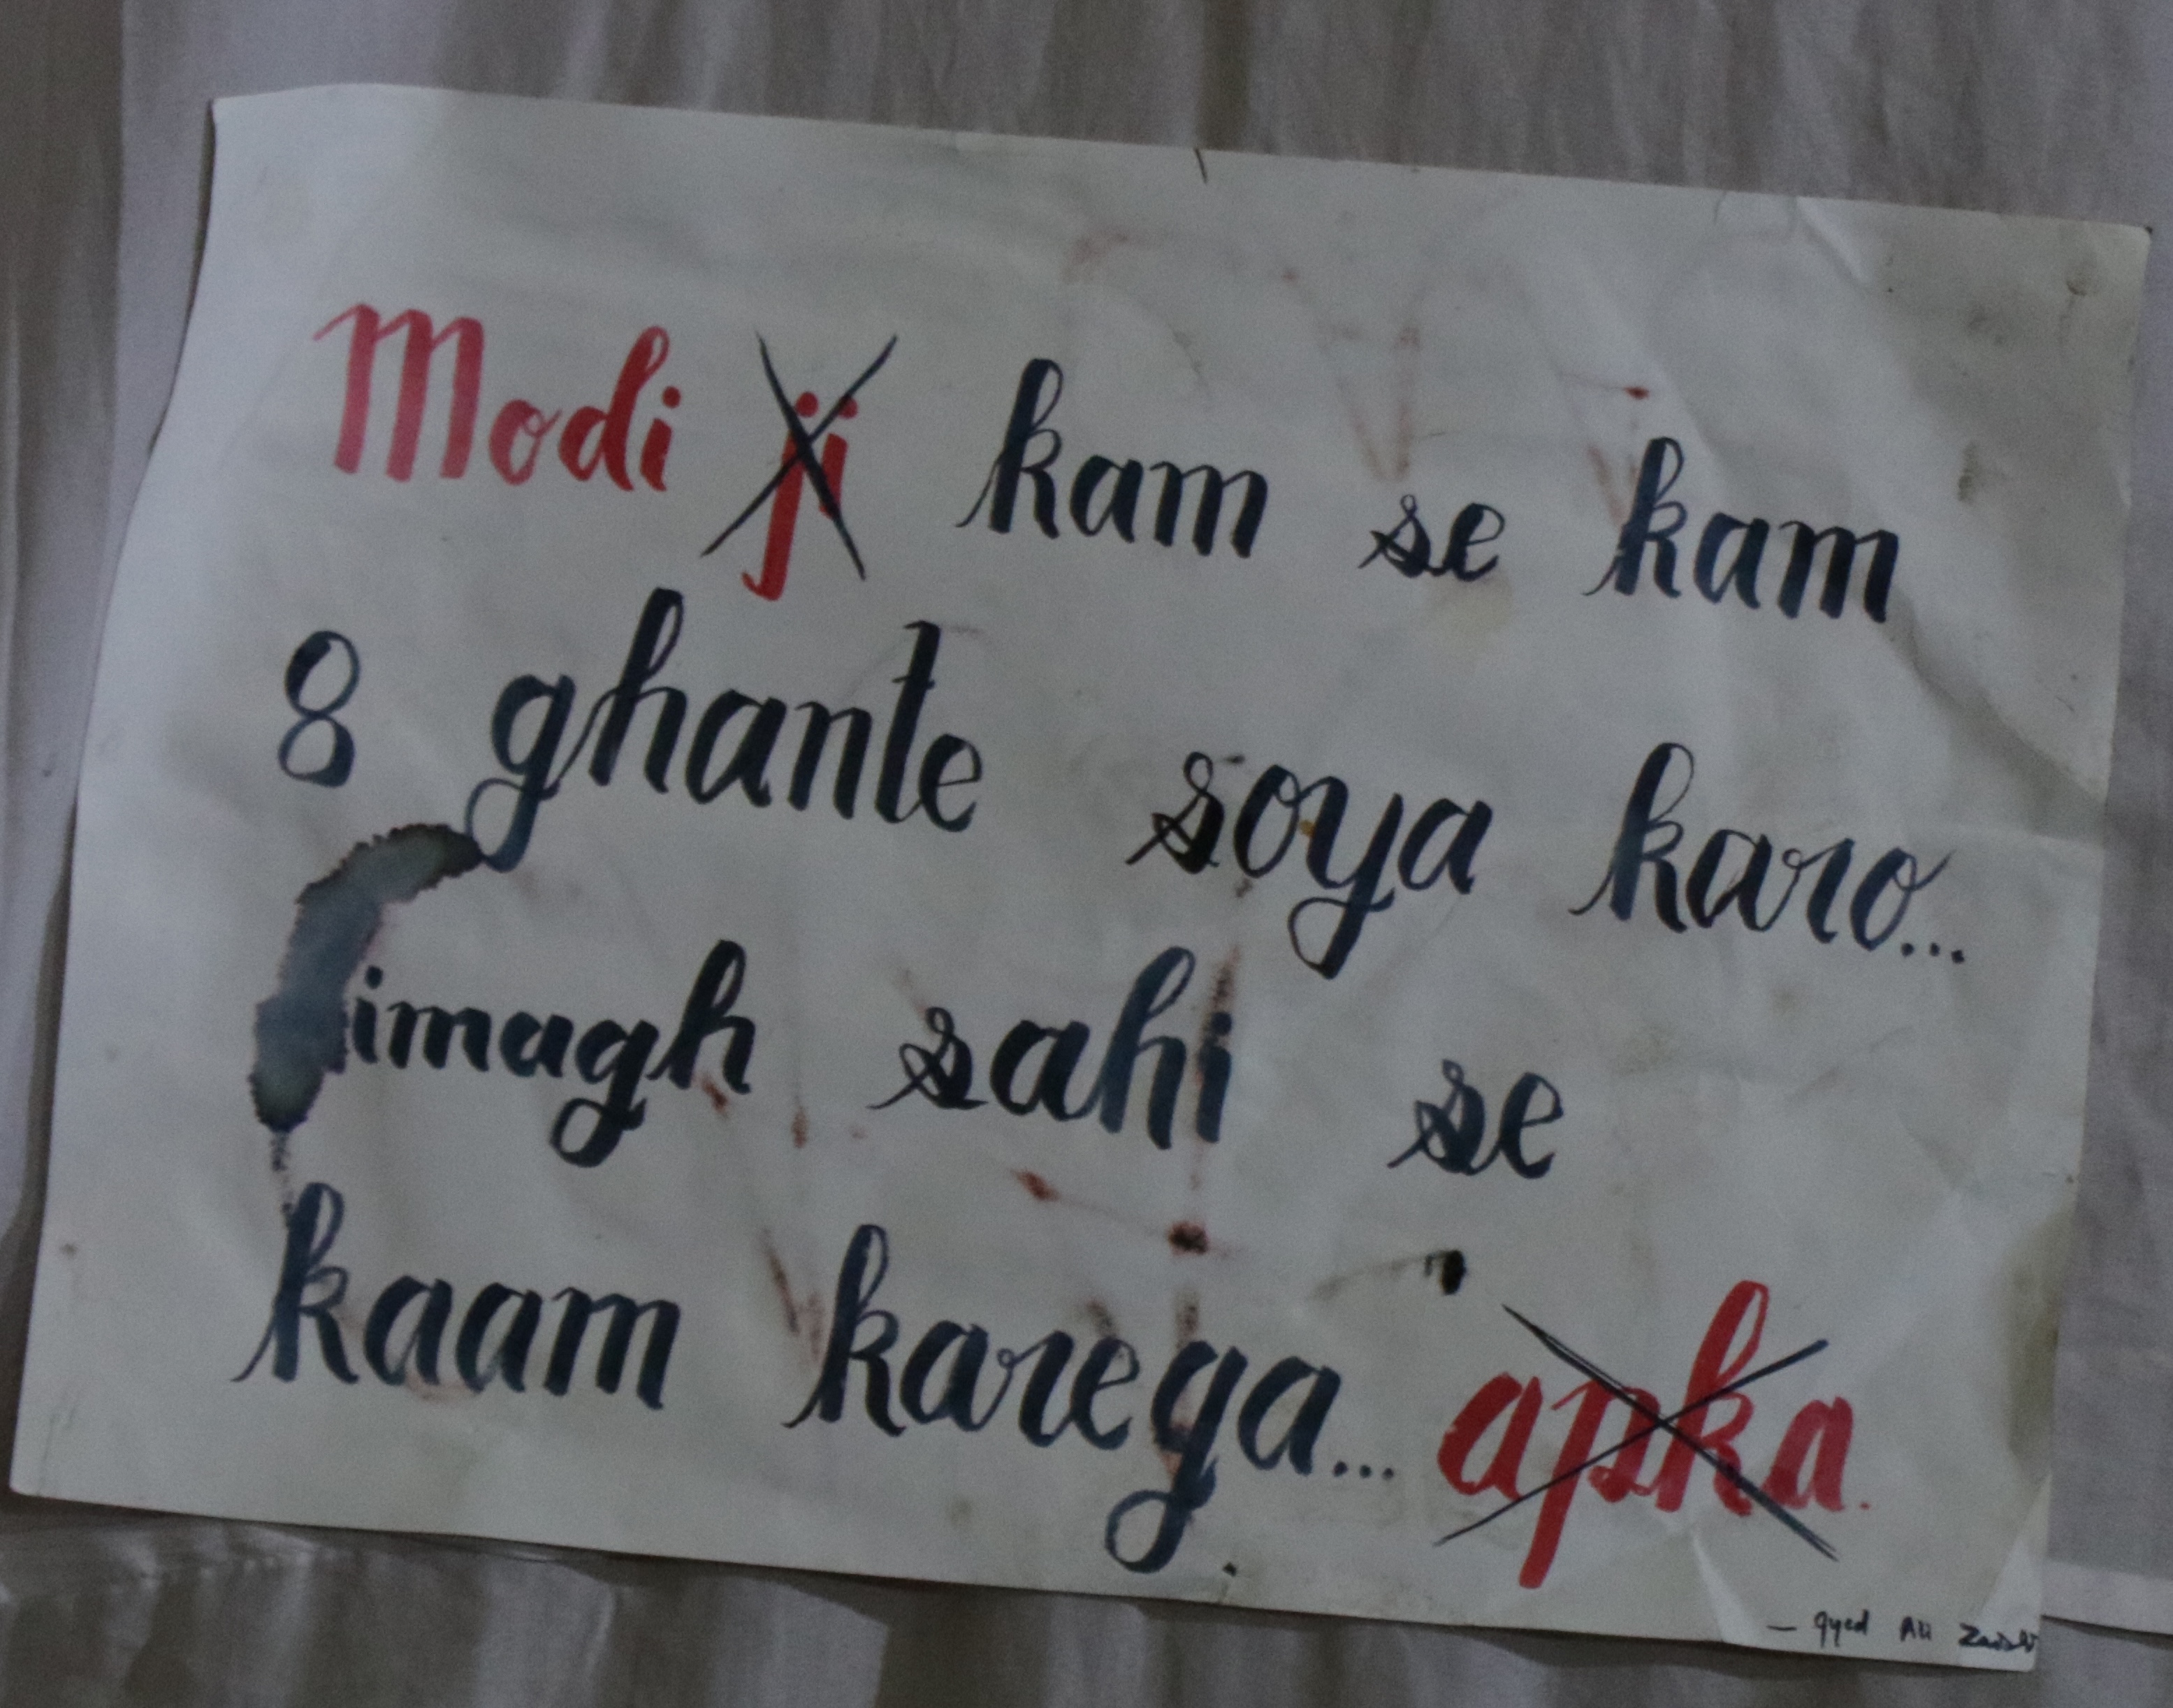 Modi ji kam se kam
8 ghante soya karo...
imagh sahi se
kaam karega... apka.
Ali